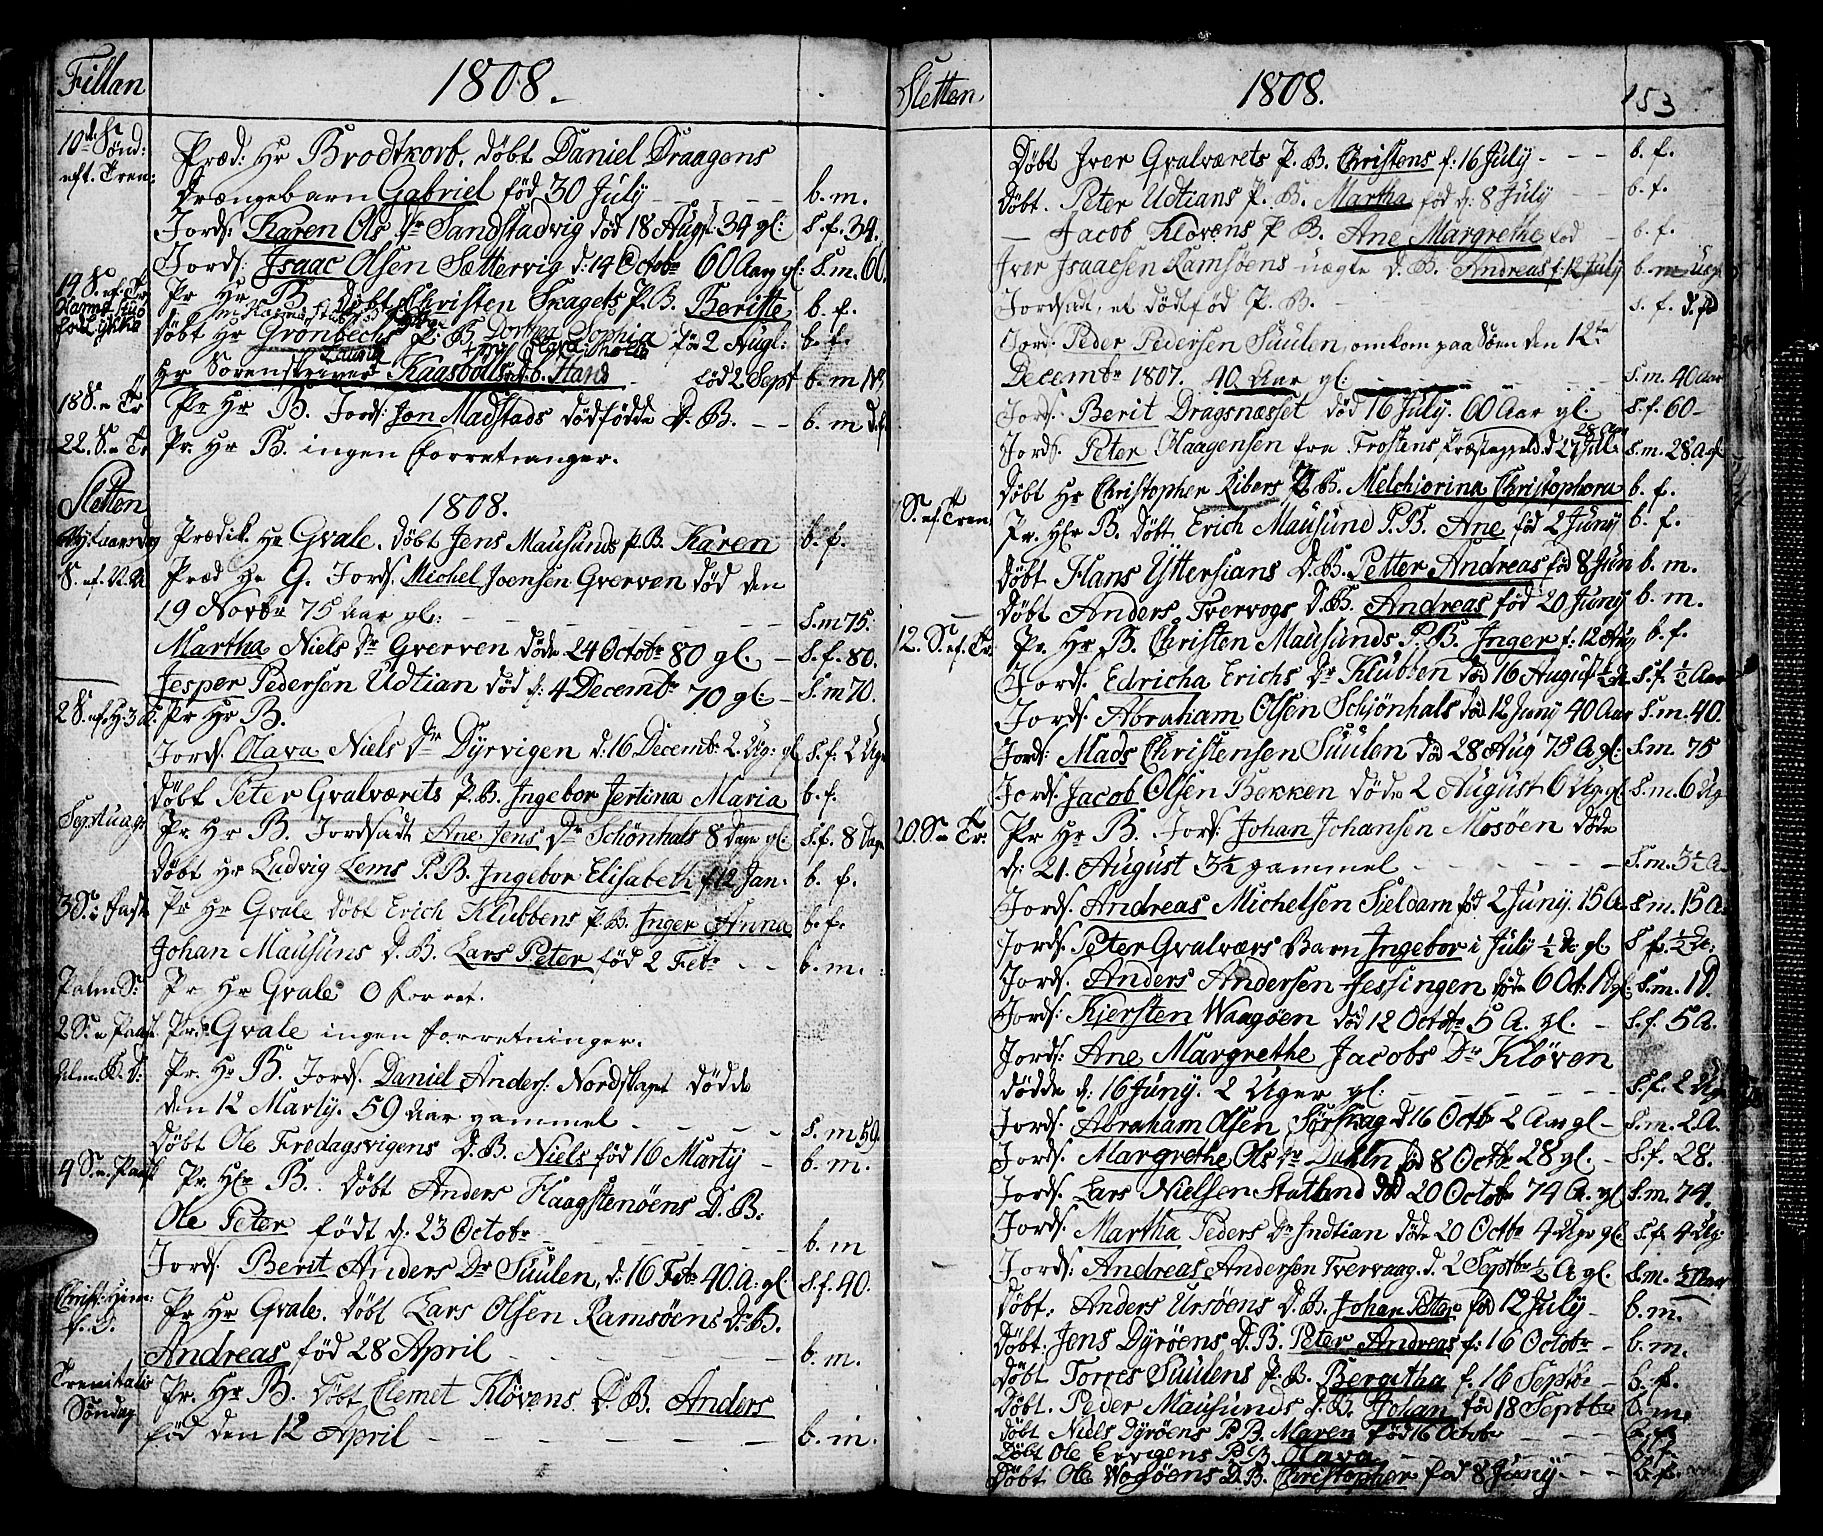 Fillan
1808.
10de Sønd:
eft. Tren:
Præd: Hr Brodtkorb. døbt Daniel Draagens
Drængebarn Gabriel fød 30 July - - - b. m.
Jords: Karen Ols Dr Sandstadvig død 18 Aug. 34 gl: S. f. 34.
Jords: Isaac Olsen Sættervig d: 14 Octobr 60 Aar gl: S. m. 60.
19 S. ef. Tr
Pr Hr B. døbt Christen P. B. Beritte b. f.
døbt Hr Grønbechs P. B. Dorthea Sophia fød 2 Augl: b. f.
Hr Sorenskriver Kaasbølls D. B. fød 2 Sept b. m
18 S. e Tr
Pr Hr B. Jords: Jon Madstads dødfødde D. B. - - b. m d.f.
22. S. e Tr
Pr. Hr B. ingen Forretninger.
Sletten
1808.
Prædik. Hr Gvale. døbt Jens Mausunds P. B. Karen b. f.
S. ef. N. A
Præd Hr G. Jords. Michel Joensen Gverven død den
19 Novbr 75 Aar gl: - - - S. m 75.
Martha Niels Dr Gverven døde 24 Octobr 80 gl. - S. f. 80.
Jesper Pedersen Udtian død d: 4 Decembr 70 gl: - S. m 70.
2 S. ef. H. 3 K.
Pr Hr B.
Jords. Olava Niels Dr Dyrvigen d. 16 Decembr 2. Ug: gl S. f. 2 Uger
døbt Peter Gvalværets P. B. Ingebor Jertina Maria b. f.
Septuag:
Pr Hr B. Jordsadt Ane Jens Dr Schönhals 8 Dage gl. S. f. 8 Dage
døbt Hr Ludvig Lems P. B. Ingebor Elisabeth f 12 Jan. b. f.
3 S. i Faste
Pr Hr Gvale døbt Erich Klubbens P. B. Inger Anna b. f.
Johan Mausuns D. B. Lars Peter fød 2 Febr - - b. m.
Palm S:
Pr Hr Gvale 0 forret.
2 S. e Paask.
Pr: Gvale ingen forretninger.
Alm. B. D:
Pr. Hr B. Jords. Daniel Anders: Nordskaget dødde
den 12 Marty. 59 Aar gammel - - - S. m 59.
døbt Ole Fredagsvigens D. B. Niels fød 16 Marty - b. m.
4 S. e Paask
Pr. Hr B. døbt Anders Haagstenøens D. B.
Ole Peter født d. 23 Octobr - - - b. m
Jords. Berit Anders Dr Suulen, d. 16 Febr 40. A. gl S. f. 40.
Christ: Him:
f. D.
Pr Hr Gvale. døbt Lars Olsen Ramsøens D. B.
Andreas fød 28 April - - - b. m.
Trenitatis
Søndag
Pr. Hr B. døbt Clemet Kløvens D. B. Anders
fød den 12 April - - - b. m.
Sletten
1808.
153
Døbt Iver Gvalværets P. B. Christens f: 16 July - - - b. f.
døbt. Peter Udtians P. B. Martha fød d: 8 July - - b. f.
- Jacob Kløvens P B. Ane Margrethe fød - b. f.
Iver Isaacsen Ramsøens uægte D. B. Andreas f. 12 July b. m
Jordsadt, et dødfød P. B. - S. f.
Jord: Peder Pedersen Suulen, omkom paa Søen den 12te
Decembr 1807. 40 Aar gl: - - - S. m. 40 Aar
Jords: Berit Dragsnæsset død 16 July. 60 Aar gl. S. f. 60-
Jords. Peter Haagensen fra Frostens Præstegjeld d 27 Jul. 28 Aar S. m. 28 A. gl
døbt Hr Christopher Ribers P. B. Melchiorina Christophora b. f.
7 S. ef. Tren.
Pr. Hr B. døbt. Erich Mausund P. B. Ane fød 2 Juny b. f.
døbt Hans Yttersians D. B. Petter Andreas fød 8 Jun b. m.
døbt Anders Tvervogs D. B. Andreas fød 20 Juny b. m.
12. S. ef. Tr.
Pr. Hr B. Christen Mausunds P. B. Inger f: 12 Aug b. f.
Jords. Edricha Erichs Dr Klubben død 16 August ½ Ar S. f. ½ Aar
Jords. Abraham Olsen Schjønhals død 12 Juny 40 Aar S. m. 40.
Jords: Mads Christensen Suulen død 28 Aug 75 A. gl: S. m. 75
Jords. Jacob Olsen Bekken døde 2 August 6 Ug. gl S. m. 6 Ug
20. S. e Tr.
Pr Hr B. Jords: Johan Johansen Mosøen døde
d: 21. August 3½ gammel - - - S. m. 3½ A.
Jords. Andreas Michelsen Sieldarn fød 2 Juny. 15 A. S. m. 15 A.
Jords: Peter Gvalværs Barn Ingebor i July ½ A: gl S f. ½ A:
Jords. Anders Andersen Hessingen døde 6 Oct. S. m.
Jords: Kjersten Waagøen død 12 Octobr 5 A. gl. - S. f. 5 A.
Jords: Ane Margrethe Jacobs Dr Kløven
dødde d: 16 Juny. 2 Uger gl: - - - S. f. 2 Ug:
Jords: Abraham Olsen Sørskag d 16 Octb 2 Aar gl - S. m. 2 A.
Jords. Margrethe Ols Dr død 8 Octbr 28 gl. - S. f. 28.
Jords: Lars Nielsen Statland død 20 Octobr 74 A. gl S. m. 74.
Jords. Martha Peders Dr Indtian døde 20 Octbr 4 Uger gl. S. f. 4 Ug:
Jords: Andreas Andersen Tvervaag. d. 2 Septbr ½ A gl. S. m. ½ Aar
døbt: Anders Ursøens D. B. Johan Peter fød 12 July - b. m.
døbt: Jens Dyrøens D. B. Peter Andreas f: 16 Octobr - b. m.
døbt Torres Suulens P. B. Beratha f. 16 Septbr - b. f.
døbt. Peder Mausunds D. B. Johan fød 18 Septbr b. m.
døbt Niels Dyrøens P. B. Maren fød 16 Octobr - - b. f.
døbt Ole P. B. Olava - - - b. f.
døbt Ole Wogøens D. B. Christopher fød 8 Juny - - - b. f.